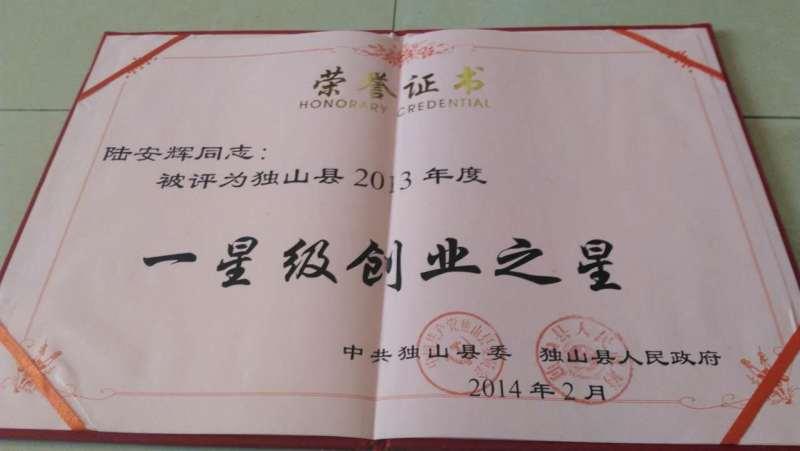 荣誉证书
HONORARY CREDENTIAL
陆安辉同志：
被评为独山县2013年度
一星级创业之星
中共独山县委 独山县人民政府
2014年2月